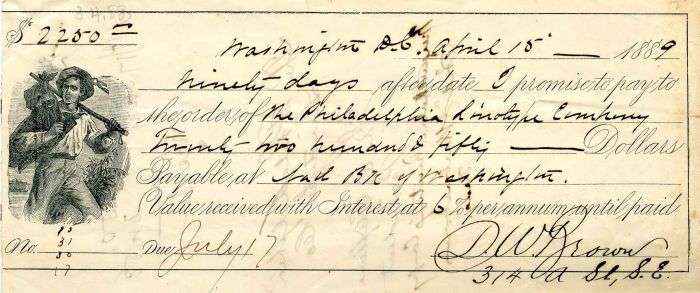 $ 2250 00
Washington D.C. April 15 — 1889
Ninety days after date I promise to pay to
the order of The Philadelphia Linotype Company
Twenty two hundred & fifty — Dollars
Payable at Nat Bk of Washington.
Value received, with Interest, at 6 % per annum until paid
No. Due July 17
15
31
30
17
D. W. Brown
314 A St, S.E.